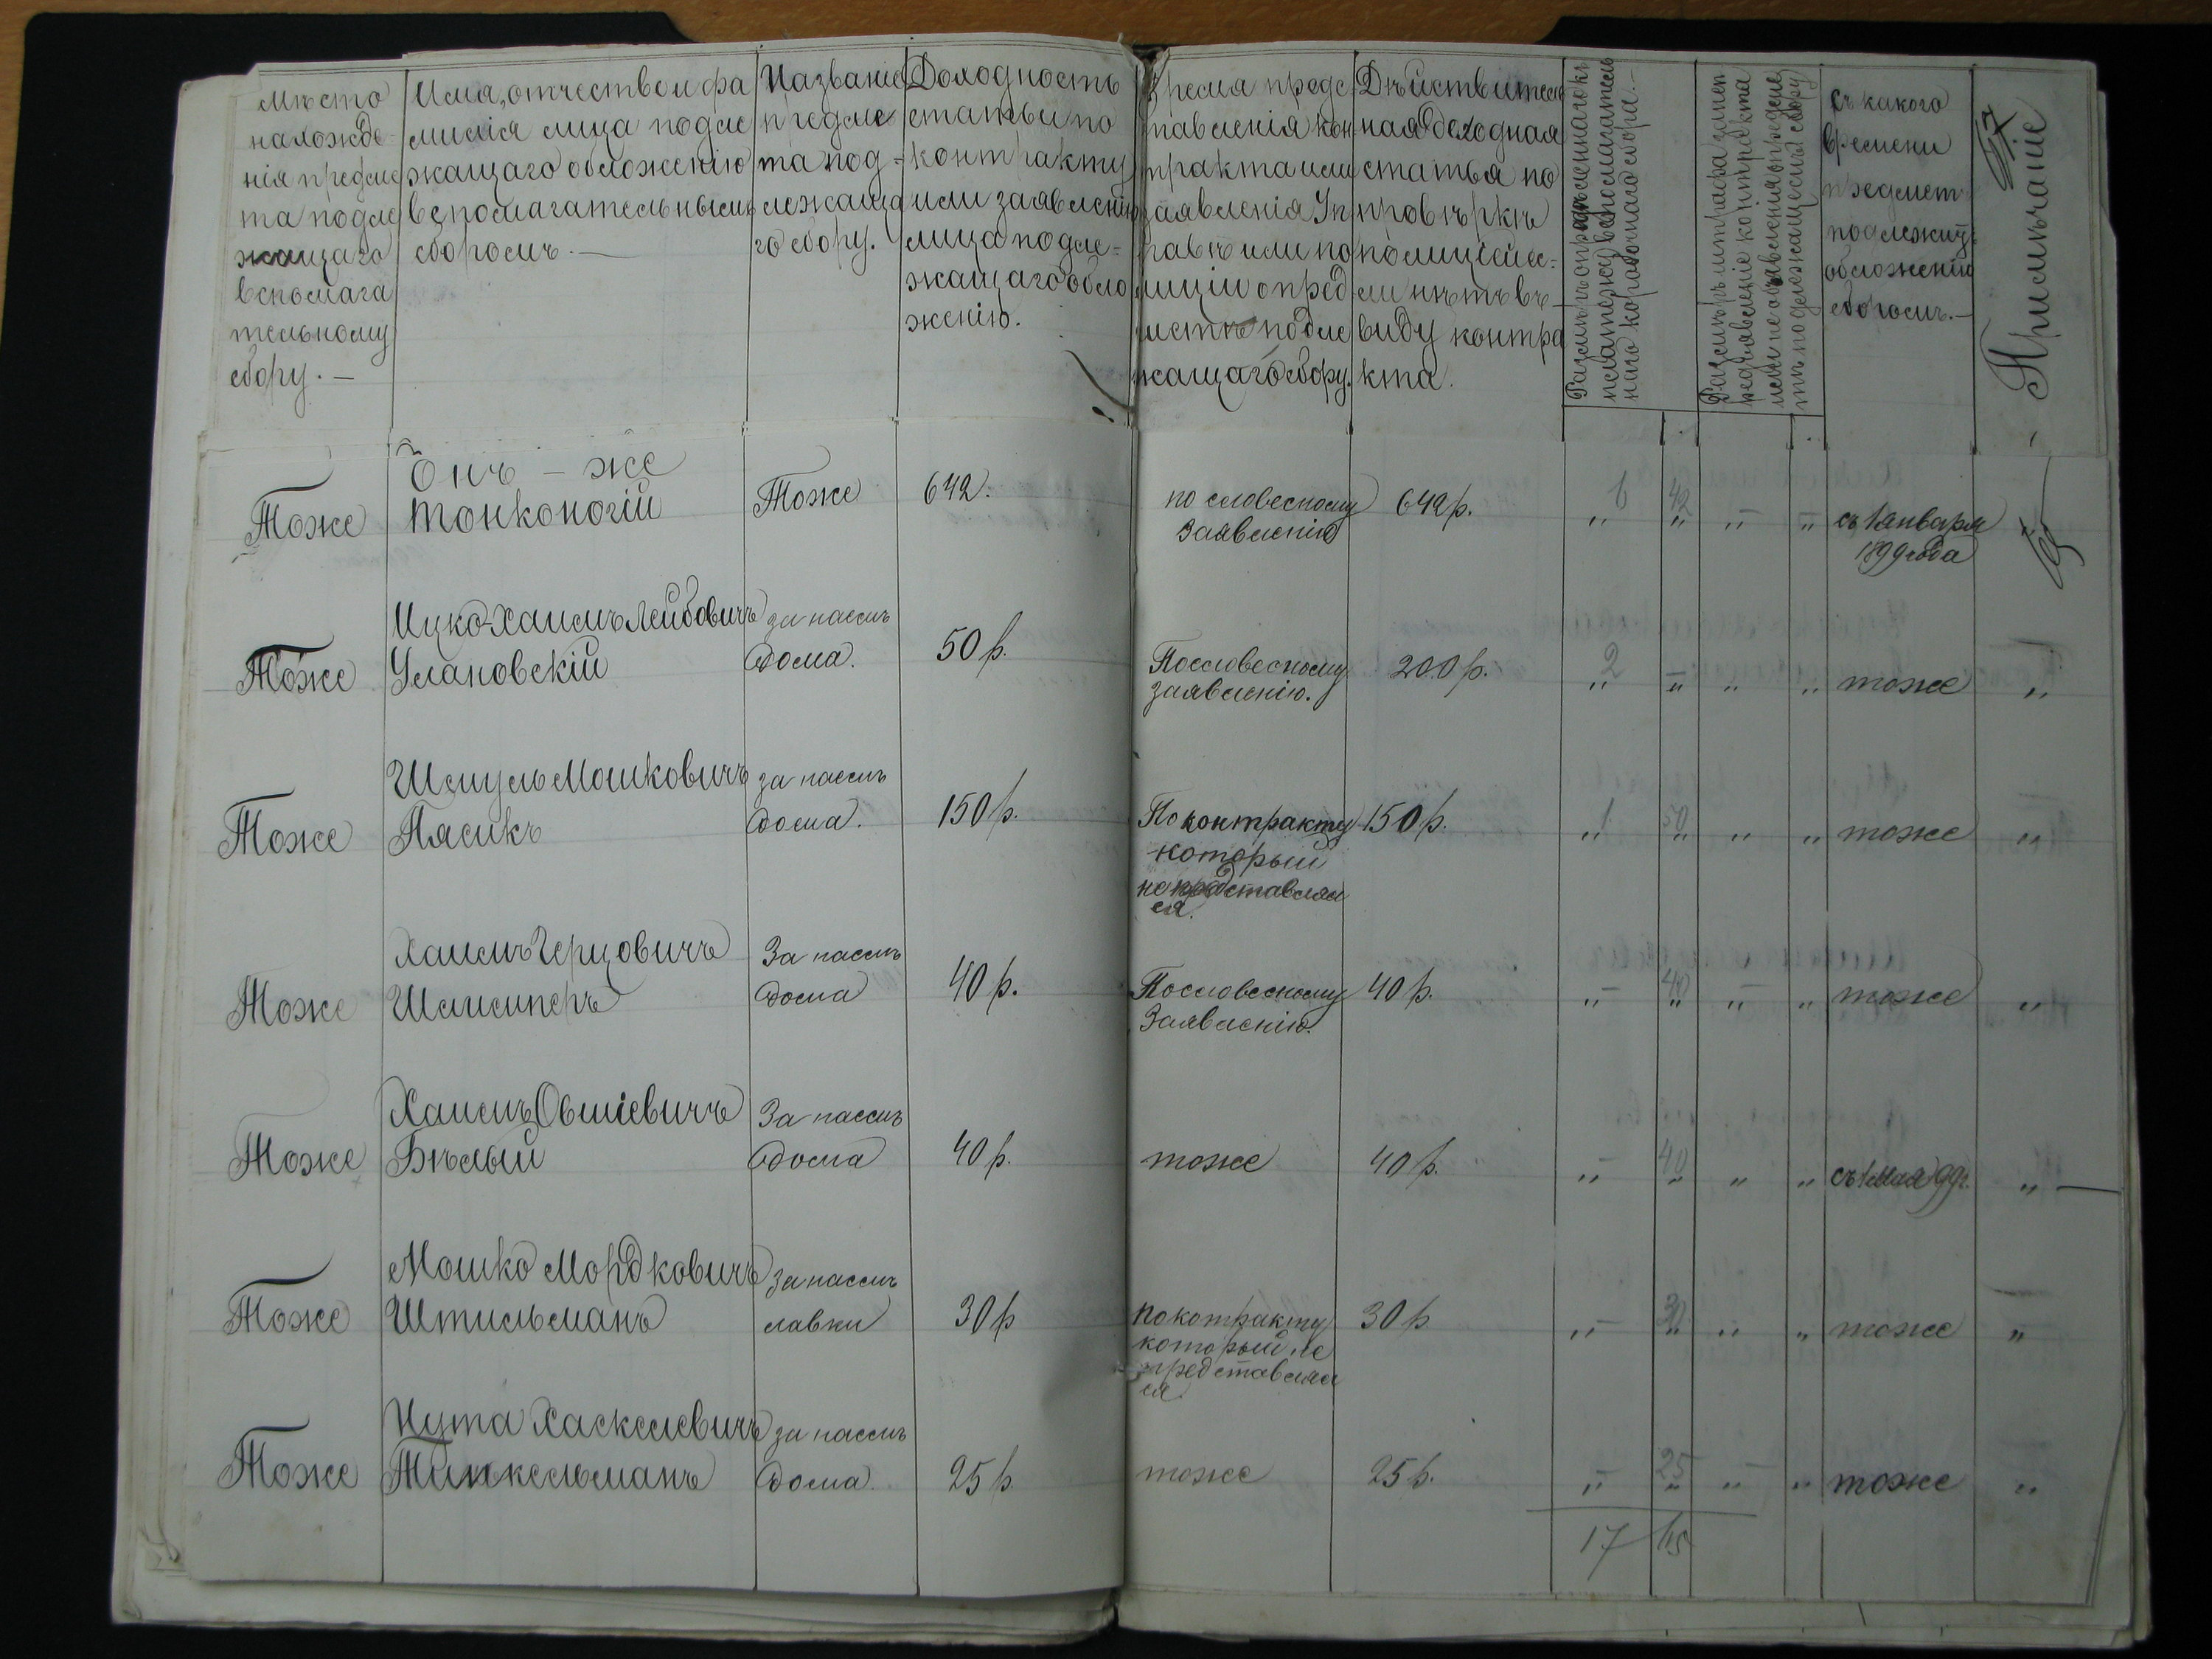 Мѣсто
нахожде-
нія предме
та подле
жащаго
вспомага
тельному
сбору. —
Имя, отчество и фа
милія лица подле
жащаго обложенію
вспомагательнымъ
сборомъ. —
Названіе
предме
та под-
лежаща
го сбору.
Доходность
статьи по
контракту
или заявленію
лица подле-
жащаго обло
женію.
Время предс
тавленія кон
тракта или
заявленія Уп
равѣ или по
лиціи о пред
метѣ подле
жащаго сбору.
Дѣйствитель
ная доходная
статья по
провѣркѣ
полиціей е-
сли нѣтъ въ
виду контра
кта.
съ какого
времени
предметъ
подлежитъ
обложенію
сборомъ. —
Примѣчаніе
Тоже
Онъ - же
Тонконогій
Тоже
642.
по словесному
заявленію
642 р.
6 42
съ 1 января
1899 года
Тоже
Ицко-Хаимъ Лейбовичъ
Улановскій
за наемъ
дома.
50 р.
По словесному
заявленію.
200 р.
2 —
тоже
Тоже
Шмуль Мошковичъ
Пясикъ
за наемъ
дома.
150 р.
По контракту
который
не представлял
ся.
150 р.
1 50
тоже
Тоже
Хаимъ Герцовичъ
За наемъ
дома
40 р.
По словесному
Заявленію.
40 р.
— 40
тоже
Тоже
Хаимъ Овшіевичъ
Бѣлый
За наемъ
дома
40 р.
тоже
40 р.
— 40
съ 1 мая 99 г.
Тоже
Мошко Мордковичъ
Штильманъ
За наемъ
лавки
30 р
по котракту
который не
представлял
ся.
30 р
— 30
тоже
Тоже
Нута Хаскелевичъ
Тинкельманъ
за наемъ
дома.
25 р
тоже
25 р.
— 25
тоже
17